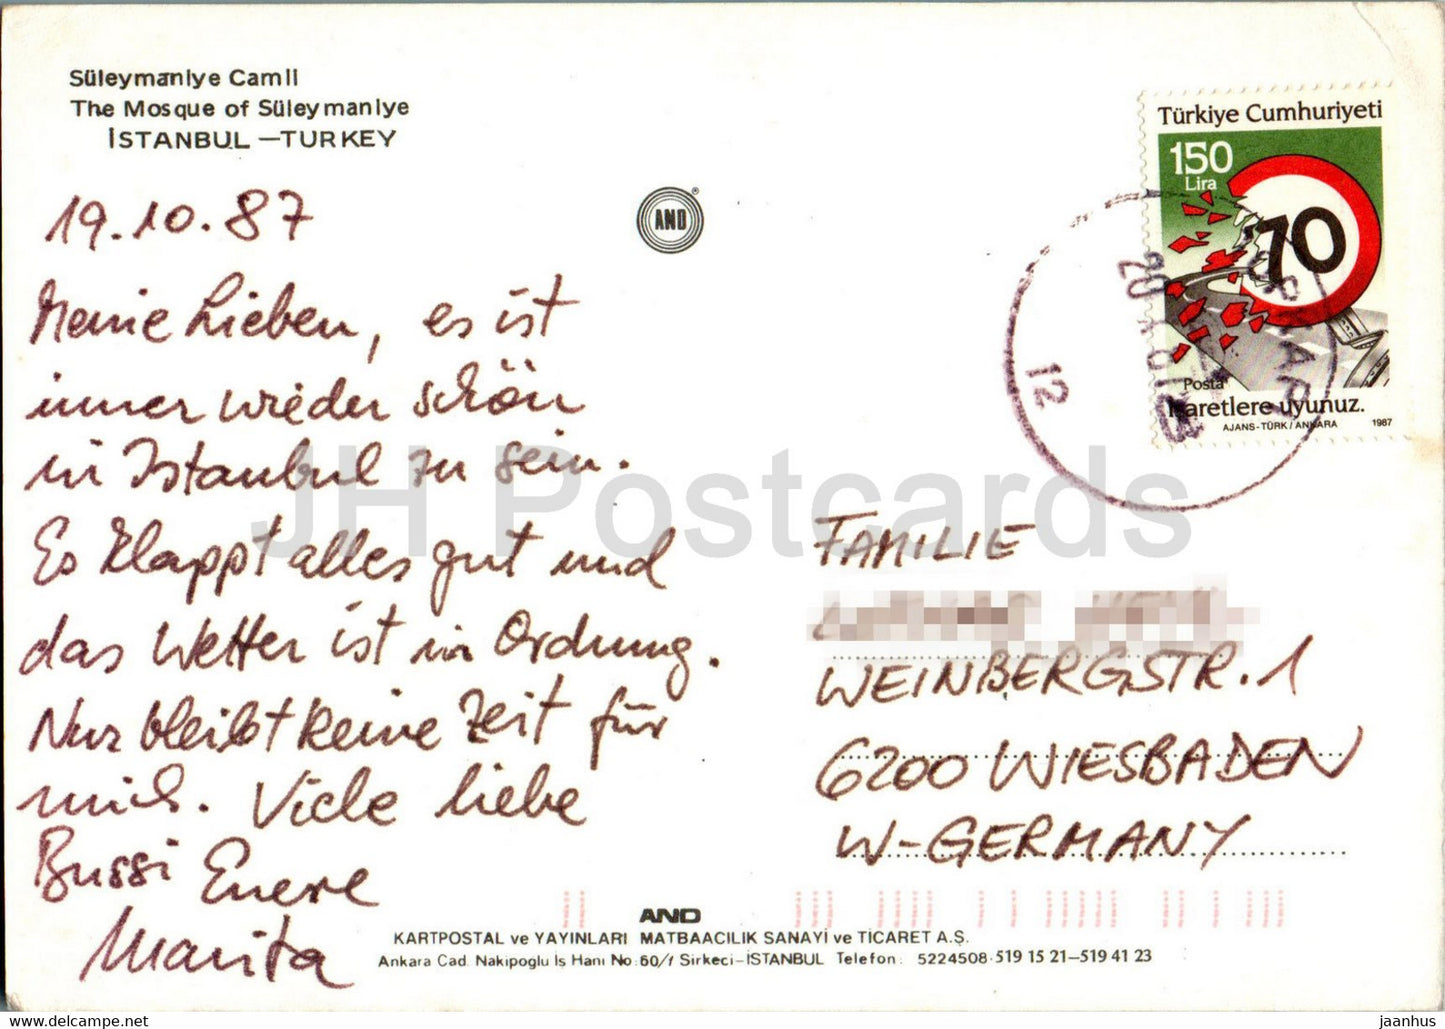 Süleymaniye Camii
The Mosque of Süleymaniye
İSTANBUL —TURKEY
19.10.87
Meine Lieben, es ist
immer wieder schön
in Istanbul zu sein.
Es klappt alles gut und
das Wetter ist in Ordnung.
Nur bleibt keine Zeit für
mich. Viele liebe
Bussi Euere
Marita
AND
®
Türkiye Cumhuriyeti
150
Lira
70
Posta
İşaretlere uyunuz.
AJANS-TÜRK / ANKARA 1987
20
12
FAMILIE
WEINBERGSTR. 1
6200 WIESBADEN
W-GERMANY
JH Postcards
AND
KARTPOSTAL ve YAYINLARI MATBAACILIK SANAYİ ve TİCARET A.Ş.
Ankara Cad. Nakipoglu İş Hanı No: 60/1 Sirkeci-İSTANBUL Telefon: 5224508-519 15 21-519 41 23
http://jhpostcards.delcampe.net
jaanhus